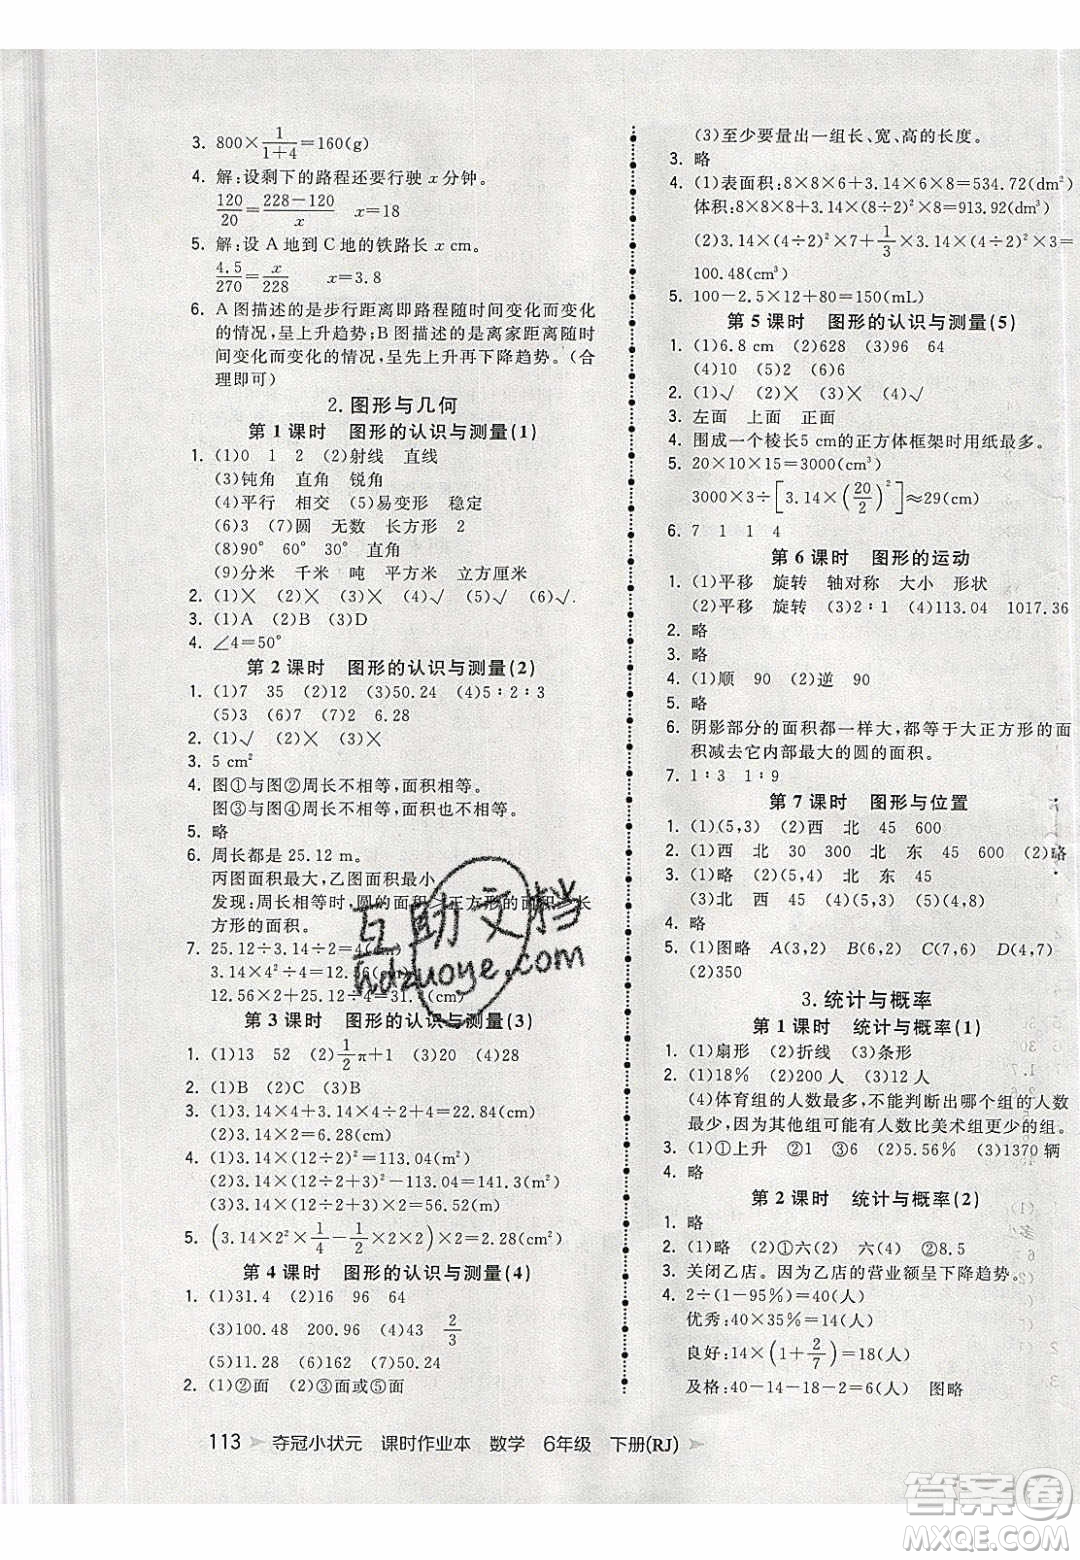 3. 800×1/(1+4)=160(g)
4. 解:设剩下的路程还要行驶 x 分钟。
120/20=(228-120)/x  x=18
5. 解:设 A 地到 C 地的铁路长 x cm。
4.5/270=x/228  x=3.8
6. A 图描述的是步行距离即路程随时间变化而变化
的情况,呈上升趋势;B 图描述的是离家距离随时
间变化而变化的情况,呈先上升再下降趋势。(合
理即可)
2.图形与几何
第 1 课时 图形的认识与测量(1)
1. (1)0 1 2 (2)射线 直线
(3)钝角 直角 锐角
(4)平行 相交 (5)易变形 稳定
(6)3 (7)圆 无数 长方形 2
(8)90° 60° 30° 直角
(9)分米 千米 吨 平方米 立方厘米
2. (1)× (2)× (3)× (4)√ (5)√ (6)√
3. (1)A (2)B (3)D
4. ∠4=50°
第 2 课时 图形的认识与测量(2)
1. (1)7 35 (2)12 (3)50.24 (4)5∶2∶3
(5)3 (6)7 (7)2 6.28
2. (1)√ (2)× (3)× (4)×
3. 5 cm²
4. 图①与图②周长不相等,面积相等。
图③与图④周长不相等,面积也不相等。
5. 略
6. 周长都是 25.12 m。
丙图面积最大,乙图面积最小
发现:周长相等时,圆的面积>正方形的面积>长
方形的面积。
7. 25.12÷3.14÷2=4(cm)
3.14×4²÷
12.56×2÷ =31.4(cm)
第 3 课时 图形的认识与测量(3)
1. (1)13 52 (2)1/2π+1 (3)20 (4)28
2. (1)B (2)C (3)B
3. (1)3.14×4+3.14×4÷2+4=22.84(cm)
(2)3.14×4÷2+4×2=14.28(cm)
4. (1)3.14×(12÷2)²=113.04(cm²)
(2)3.14×(12÷2+3)²-113.04=141.3(cm²)
(3)3.14×(12÷2+3)×2=56.52(cm)
5. (3.14×2²×1/4-1/2×2×2)×2=2.28(cm²)
第 4 课时 图形的认识与测量(4)
1. (1)31.4 (2)16 96 64
(3)100.48 200.96 (4)43 2/3
(5)11.28 (6)162 (7)4
2. (1)②面 (2)②面或⑤面
(3)至少要量出一组长、宽、高的长度。
3. 略
4. (1)表面积:8×8×6+3.14×6×8=534.72(dm²)
体积:8×8×8+3.14×(6÷2)²×8=913.92(dm³)
(2)3.14×(4÷2)²×7+1/3×3.14×(4÷2)²×3=
100.48(cm³)
5. 100-2.5×12+80=150(mL)
第 5 课时 图形的认识与测量(5)
1. (1)6.8 cm (2)628 (3)96 64
(4)10 (5)2 (6)32
2. (1)√ (2)× (3)× (4)√
3. 左面 上面 正面
4. 围成一个棱长5 cm的正方体框架时用纸最多。
5. 20×10×15=3000(cm³)
3000×3÷[3.14×(20/2)²]≈29(cm)
6. 7 1 1 4
第 6 课时 图形的运动
1. (1)平移 旋转 轴对称 大小 形状
(2)平移 旋转 (3)2∶1 (4)113.04 1017.36
2. 略
3. 略
4. (1)顺 90 (2)逆 90
5. 略
6. 阴影部分的面积都一样大,都等于大正方形的面
积减去它内部最大的圆的面积。
7. 1∶3 1∶9
第 7 课时 图形与位置
1. (1)(5,3) (2)西 北 45 600
2. (1)西 北 30 300 北 东 45 600 (2)略
3. (1)略 (2)(5,4) (9,8) 北 东 45
(3)北 西 45 (4)(5,5) (5)(4,8)
4. 略
5. (1)图略 A(3,2) B(6,2) C(7,6) D(4,6)
(2)350
3.统计与概率
第 1 课时 统计与概率(1)
1. (1)扇形 (2)折线 (3)条形
2. (1)18% (2)200人 (3)12 人
(4)体育组的人数最多,不能判断出哪个组的人数
最少,因为其他组可能有人数比美术组更少的组。
3. (1)①上升 ②1 ③6 (2)5.56% (3)1370 辆
4. 略
第 2 课时 统计与概率(2)
1. 略
2. (1)略 (2)①六(2) 六(4) ②8.5
3. 关闭乙店。因为乙店的营业额呈下降趋势。
4. 2÷(1-95%)=40(人)
优秀:40×35%=14(人)
良好:14×(1+2/7)=18(人)
及格:40-14-18-2=6(人) 图略
113 夺冠小状元 课时作业本 数学 6年级 下册(RJ)
互助文档
hdzuoye.com
答案圈
MXQE.COM